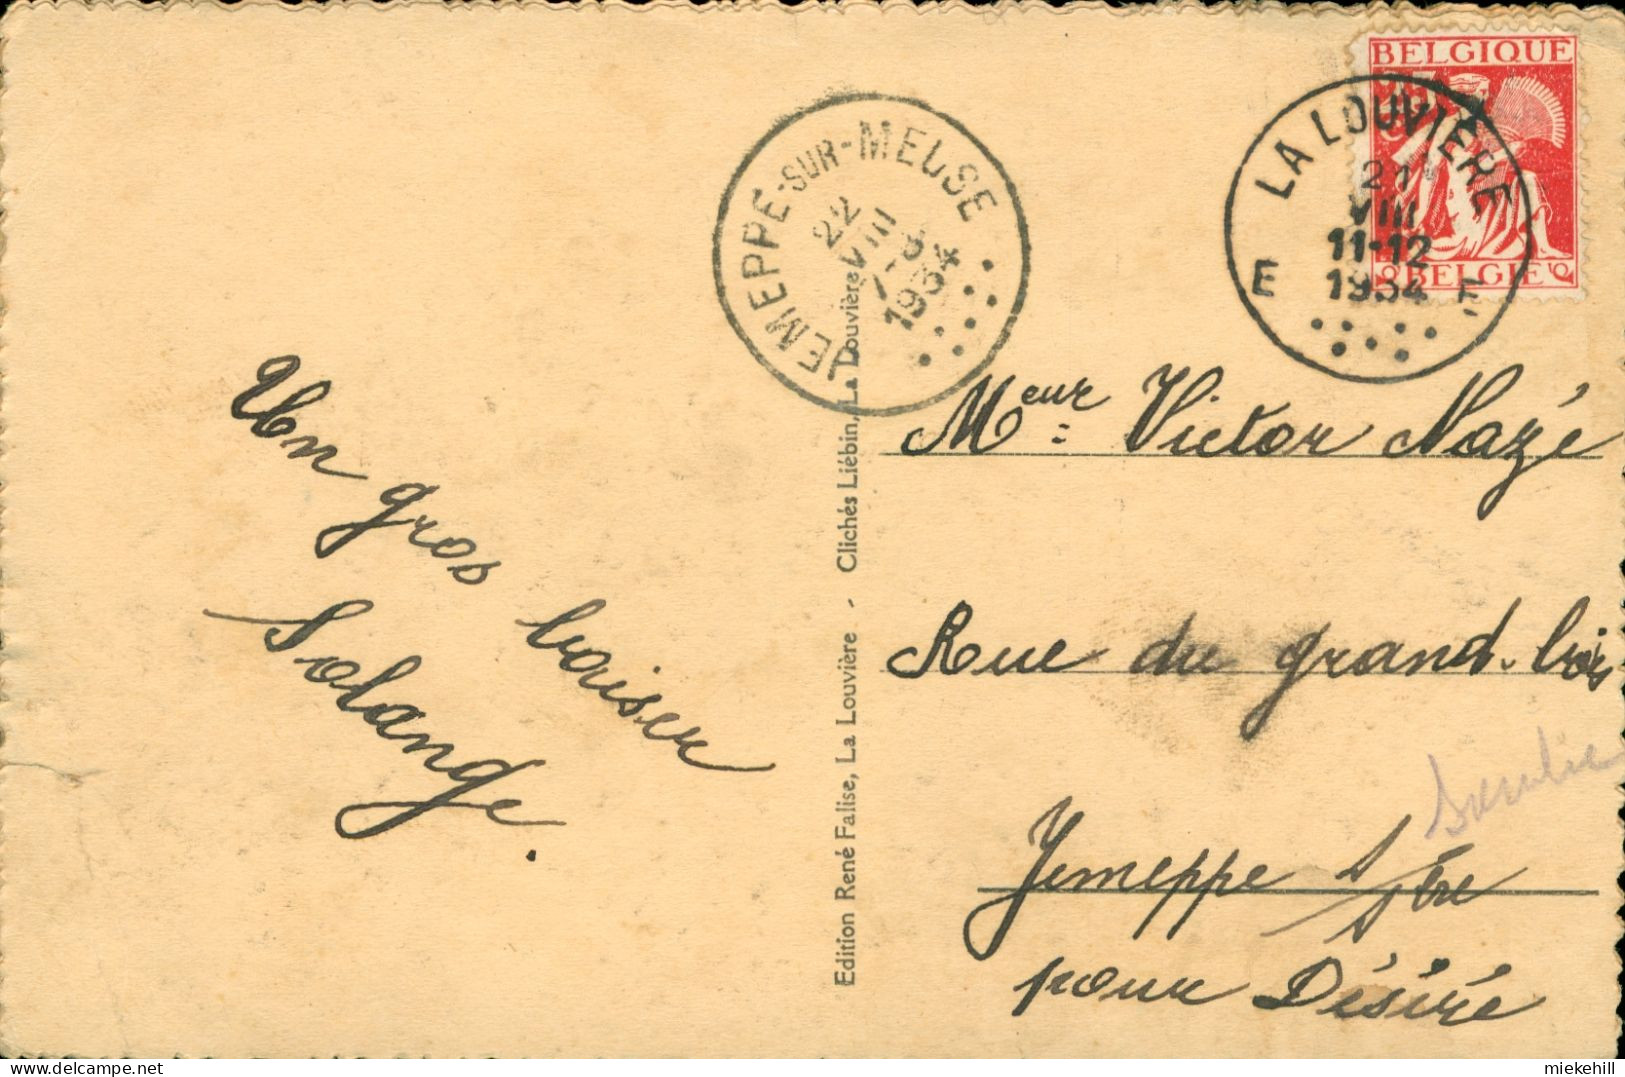 BELGIQUE
LA LOUVIÈRE
21
VIII
11-12
1934
E E
BELGIE
JEMEPPE-SUR-MEUSE
22
VIII
1934
Un gros baiser
Solange.
Edition René Falise, La Louvière - Clichés Liébin, La Louvière
Meur: Victor Nazé
Rue du grand-bois
Jemeppe s/
pour Désiré
miekehill